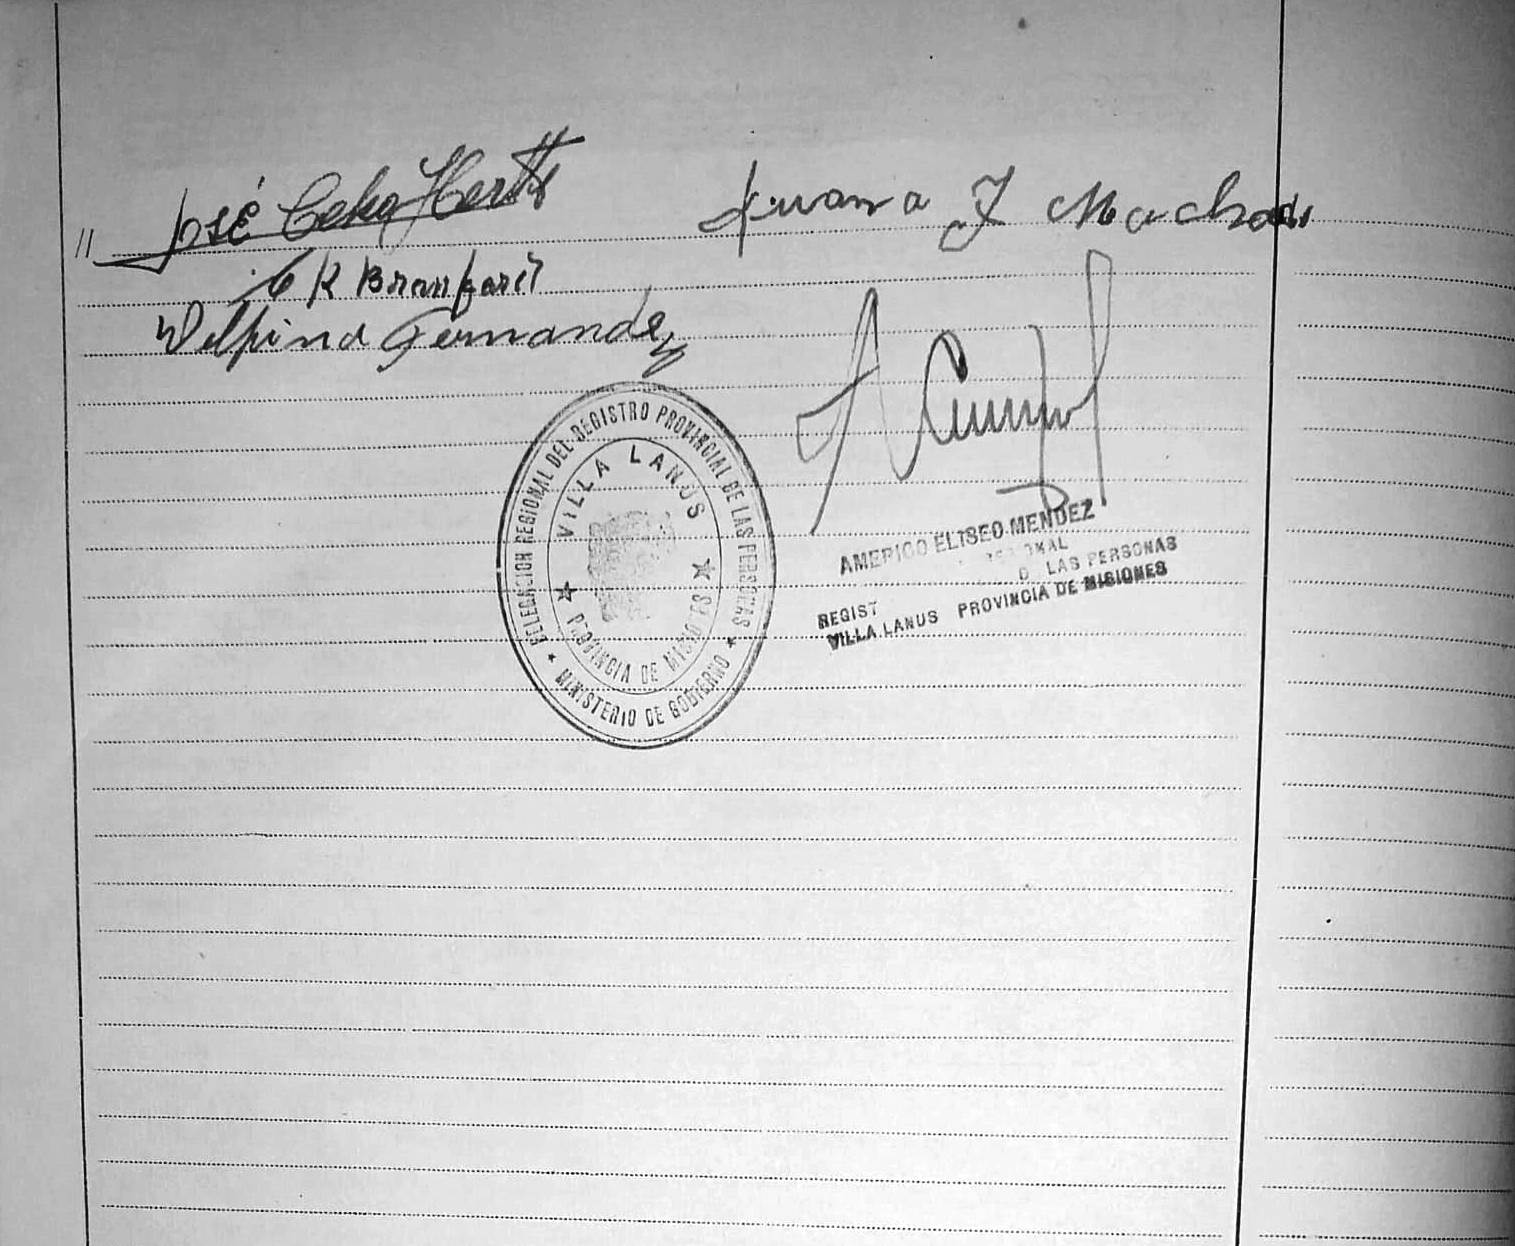 // José
Juana J Machado
Delfina Fernandez
DELEGACION REGIONAL DEL REGISTRO PROVINCIAL DE LAS PERSONAS
VILLA LANUS
PROVINCIA DE MISIONES
MINISTERIO DE GOBIERNO
AMERICO ELISEO MENDEZ
LAS PERSONAS
REGIST
VILLA LANUS PROVINCIA DE MISIONES